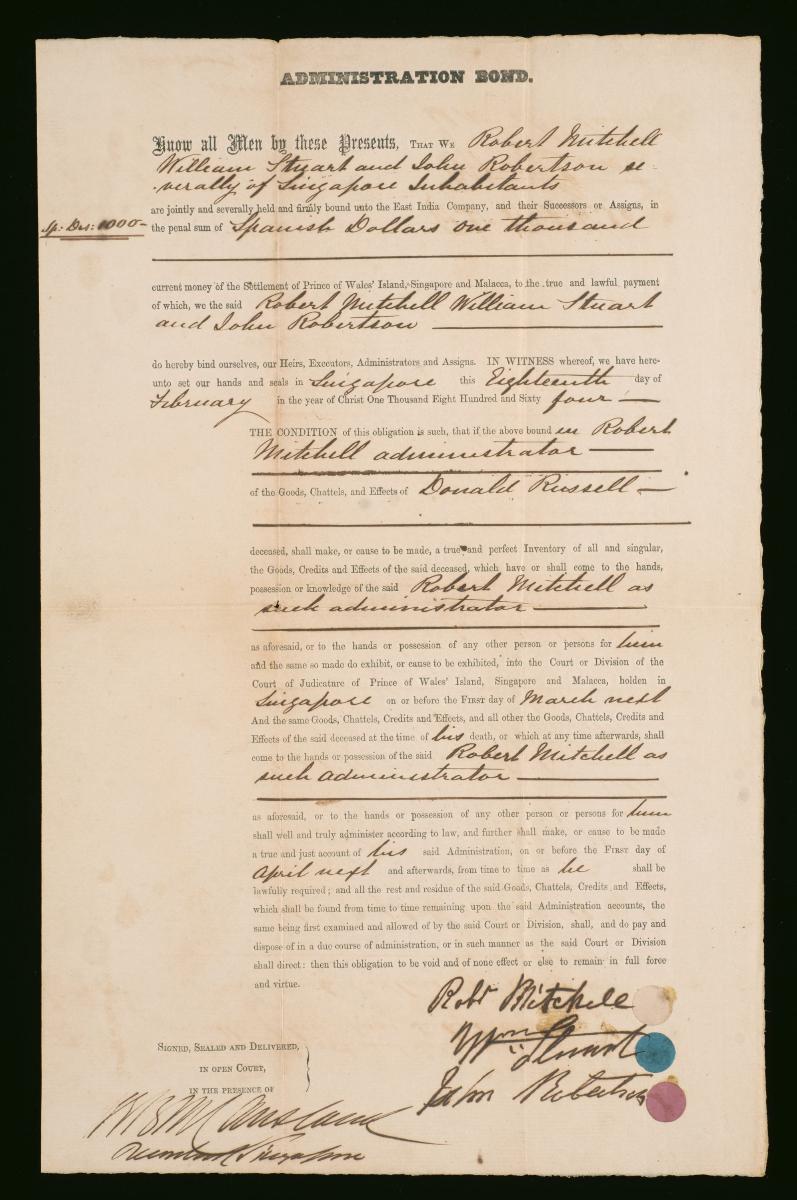 ADMINISTRATION BOND.
Know all Men by these Presents, THAT WE Robert Mitchell
William Stuart and John Robertson se-
verally of Singapore Inhabitants
are jointly and severally held and firmly bound unto the East India Company, and their Successors or Assigns, in
Sp: Drs: 1000-
the penal sum of Spanish Dollars one thousand
current money of the Settlement of Prince of Wales' Island, Singapore and Malacca, to the true and lawful payment
of which, we the said Robert Mitchell William Stuart
and John Robertson
do hereby bind ourselves, our Heirs, Executors, Administrators and Assigns. IN WITNESS whereof, we have here-
unto set our hands and seals in Singapore this Eighteenth day of
February in the year of Christ One Thousand Eight Hundred and Sixty four
THE CONDITION of this obligation is such, that if the above bound en Robert
Mitchell administrator
of the Goods, Chattels, and Effects of Donald Russell
deceased, shall make, or cause to be made, a true and perfect Inventory of all and singular,
the Goods, Credits and Effects of the said deceased, which have or shall come to the hands,
possession or knowledge of the said Robert Mitchell as
such administrator
as aforesaid, or to the hands or possession of any other person or persons for him
and the same so made do exhibit, or cause to be exhibited, into the Court or Division of the
Court of Judicature of Prince of Wales' Island, Singapore and Malacca, holden in
Singapore on or before the FIRST day of March next
And the same Goods, Chattels, Credits and Effects, and all other the Goods, Chattels, Credits and
Effects of the said deceased at the time of his death, or which at any time afterwards, shall
come to the hands or possession of the said Robert Mitchell as
such administrator
as aforesaid, or to the hands or possession of any other person or persons for him
shall well and truly administer according to law, and further shall make, or cause to be made
a true and just account of his said Administration, on or before the FIRST day of
April next and afterwards, from time to time as he shall be
lawfully required; and all the rest and residue of the said Goods, Chattels, Credits and Effects,
which shall be found from time to time remaining upon the said Administration accounts, the
same being first examined and allowed of by the said Court or Division, shall, and do pay and
dispose of in a due course of administration, or in such manner as the said Court or Division
shall direct: then this obligation to be void and of none effect or else to remain in full force
and virtue.
Robt Mitchell
Wm Stuart
John Robertson
SIGNED, SEALED AND DELIVERED,
IN OPEN COURT,
IN THE PRESENCE OF
Singapore